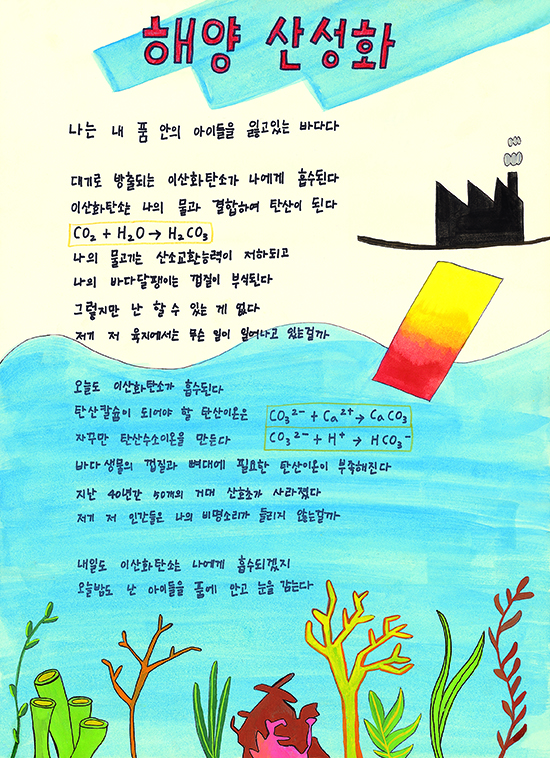 해양 산성화
나는 내 품 안의 아이들을 잃고있는 바다다
대기로 방출되는 이산화탄소가 나에게 흡수된다
이산화탄소는 나의 물과 결합하여 탄산이 된다
CO₂ + H₂O → H₂CO₃
나의 물고기는 산소교환능력이 저하되고
나의 바다달팽이는 껍질이 부식된다
그렇지만 난 할 수 있는 게 없다
저기 저 육지에서는 무슨 일이 일어나고 있는걸까
오늘도 이산화탄소가 흡수된다
탄산칼슘이 되어야 할 탄산이온은 CO₃²⁻ + Ca²⁺ → CaCO₃
자꾸만 탄산수소이온을 만든다 CO₃²⁻ + H⁺ → HCO₃⁻
바다 생물의 껍질과 뼈대에 필요한 탄산이온이 부족해진다
지난 40년간 50개의 거대 산호초가 사라졌다
저기 저 인간들은 나의 비명소리가 들리지 않는걸까
내일도 이산화탄소는 나에게 흡수되겠지
오늘밤도 난 아이들을 품에 안고 눈을 감는다